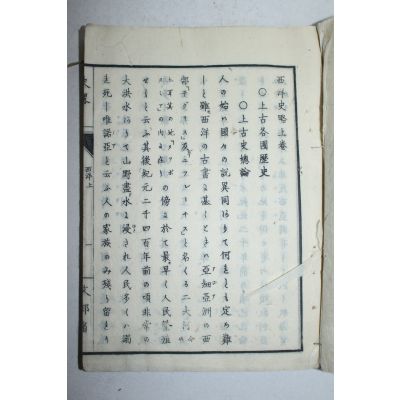 西洋史略上巻
〇上古各國歴史
〇上古史總論
人の始ハ國々の説異同ありて何れとも定め難
しと雖西洋の古書に基くときハ亞細亞洲の西
部
と名くる二大河の
の傍に於て最早く人民
せりと云ふ其後紀元二千四百年前の頃非常の
大洪水ありて山野盡く水に浸され人民多くハ溺
死し唯諾亞と云ふ人の家族のみ残り留まり
史畧
西洋上
一
文部省